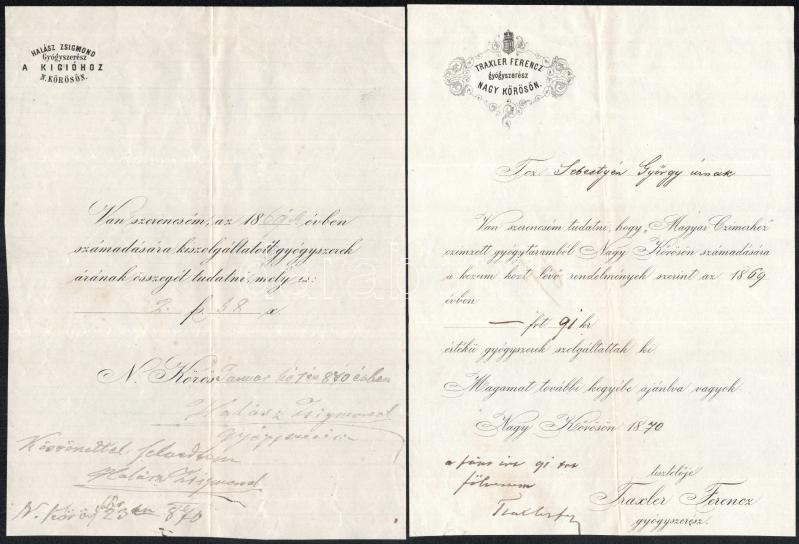 HALÁSZ ZSIGMOND
Gyógyszerész
A KIGIÓHOZ
N. KŐRÖSÖN.
Van szerencsém, az 1869 évben
számadására kiszolgáltatott gyógyszerek
árának összegét tudatni, mely is:
2. f. 38 x.
N. Kőrös Januar hó 870 évben
Halász Zsigmond
Gyógyszerész
Köszönettel felvettem
Halász Zsigmond
N. Kőrös 23 án 870
TRAXLER FERENCZ
gyógyszerész
NAGY KŐRÖSÖN.
Tez. Sebestyén György úrnak
Van szerencsém tudatni, hogy „Magyar Czimerhez"
czimzett gyógytáramból Nagy Kőrösön számadására
a kezem közt lévő rendelmények szerint az 1869
évben
— frt 91 kr
értékű gyógyszerek szolgáltattak ki.
Magamat további kegyébe ajánlva vagyok
Nagy Kőrösön 1870
a 91
fölvettem
Traxler
tisztelője
Traxler Ferencz
gyógyszerész.